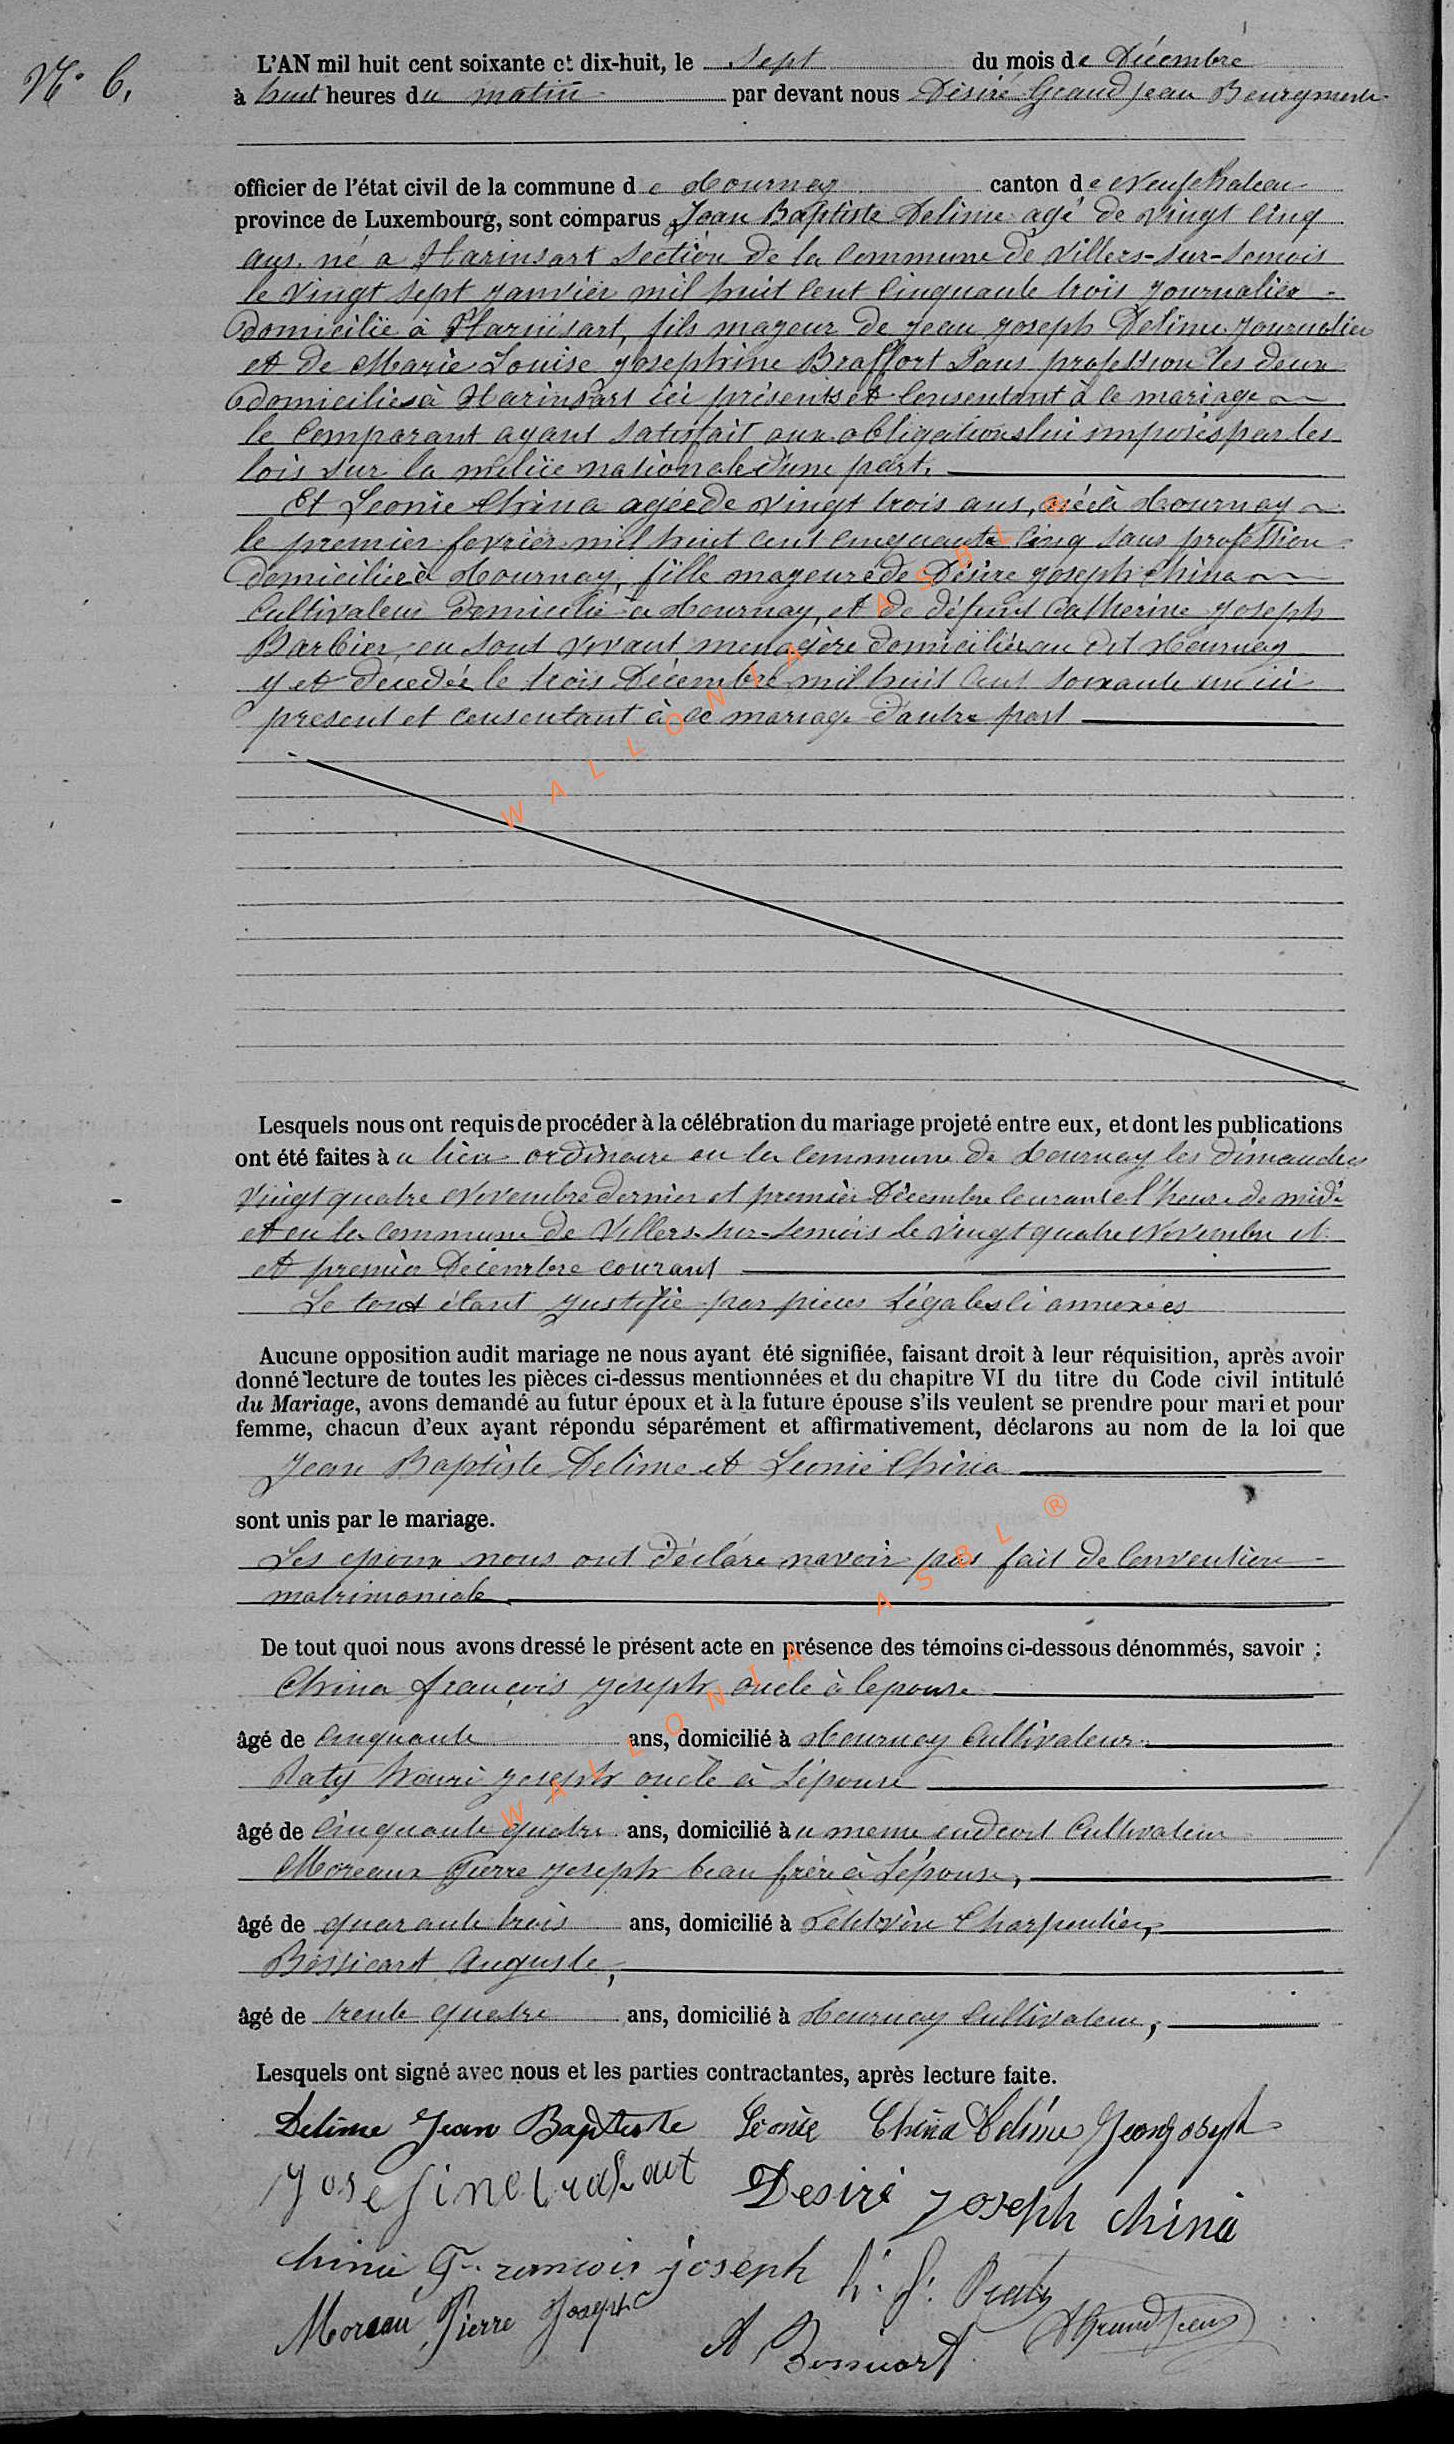 N° 6.
L'AN mil huit cent soixante et dix-huit, le sept du mois de Décembre
à huit heures du matin par devant nous Désiré Grandjean Bourgmestre
officier de l'état civil de la commune de Tournay canton de Neufchateau
province de Luxembourg, sont comparus Jean Baptiste Delime agé de vingt cinq
ans, né a Harinsart section de la commune de Villers-sur-Semois
le vingt sept janvier mil huit cent cinquante trois journalier
domicilié à Harinsart, fils mageur de Jean Joseph Delime journalier
et de Marie Louise Josephine Braffort sans profession les deux
domiciliés à Harinsart ici présents et consentant à ce mariage
le comparant ayant satisfait aux obligations lui imposés par les
lois sur la milice nationale d'une part.
Et Leonie China agée de vingt trois ans, née à Tournay
le premier fevrier mil huit cent cinquante cinq sans profession
domiciliée à Tournay, fille mageure de Désiré Joseph China
cultivateur domicilié à Tournay, et de défunt Catherine Joseph
Barbier, en sont vivant menagère domiciliée au dit Tournay
y et decedée le trois Décembre mil huit cent soixante un ici
present et consentant à ce mariage d'autre part
Lesquels nous ont requis de procéder à la célébration du mariage projeté entre eux, et dont les publications
ont été faites au lieu ordinaire en la commune de Tournay les dimanches
vingt quatre Novembre dernier et premier Décembre courant à l'heure de midi
et en la commune de Villers-sur-Semois le vingt quatre Novembre et
et premier Décembre courant
Le tout étant justifié par pieces légales ci annexées
Aucune opposition audit mariage ne nous ayant été signifiée, faisant droit à leur réquisition, après avoir
donné lecture de toutes les pièces ci-dessus mentionnées et du chapitre VI du titre du Code civil intitulé
du Mariage, avons demandé au futur époux et à la future épouse s'ils veulent se prendre pour mari et pour
femme, chacun d'eux ayant répondu séparément et affirmativement, déclarons au nom de la loi que
Jean Baptiste Delime et Leonie China
sont unis par le mariage.
Les epoux nous ont déclare navoir pas fait de convention
matrimoniale
De tout quoi nous avons dressé le présent acte en présence des témoins ci-dessous dénommés, savoir :
China françois joseph oncle à lepouse
âgé de cinquante ans, domicilié à Tournay cultivateur
Raty henri joseph oncle à l'épouse
âgé de cinquante quatre ans, domicilié au meme endroit cultivateur
Moreaux Pierre joseph beau frère à l'épouse,
âgé de quarante trois ans, domicilié à Petitvoir Charpentier,
Bossicart Auguste,
âgé de trente quatre ans, domicilié à Tournay cultivateur,
Lesquels ont signé avec nous et les parties contractantes, après lecture faite.
Delime Jean Baptiste Léonie China Delime Jeanjoseph
Josefine Desiré Joseph China
China François joseph h. J. Raty
Moreau Pierre Joseph A Bossicart DGrandjean
WALLONIA ASBL ®
WALLONIA ASBL ®